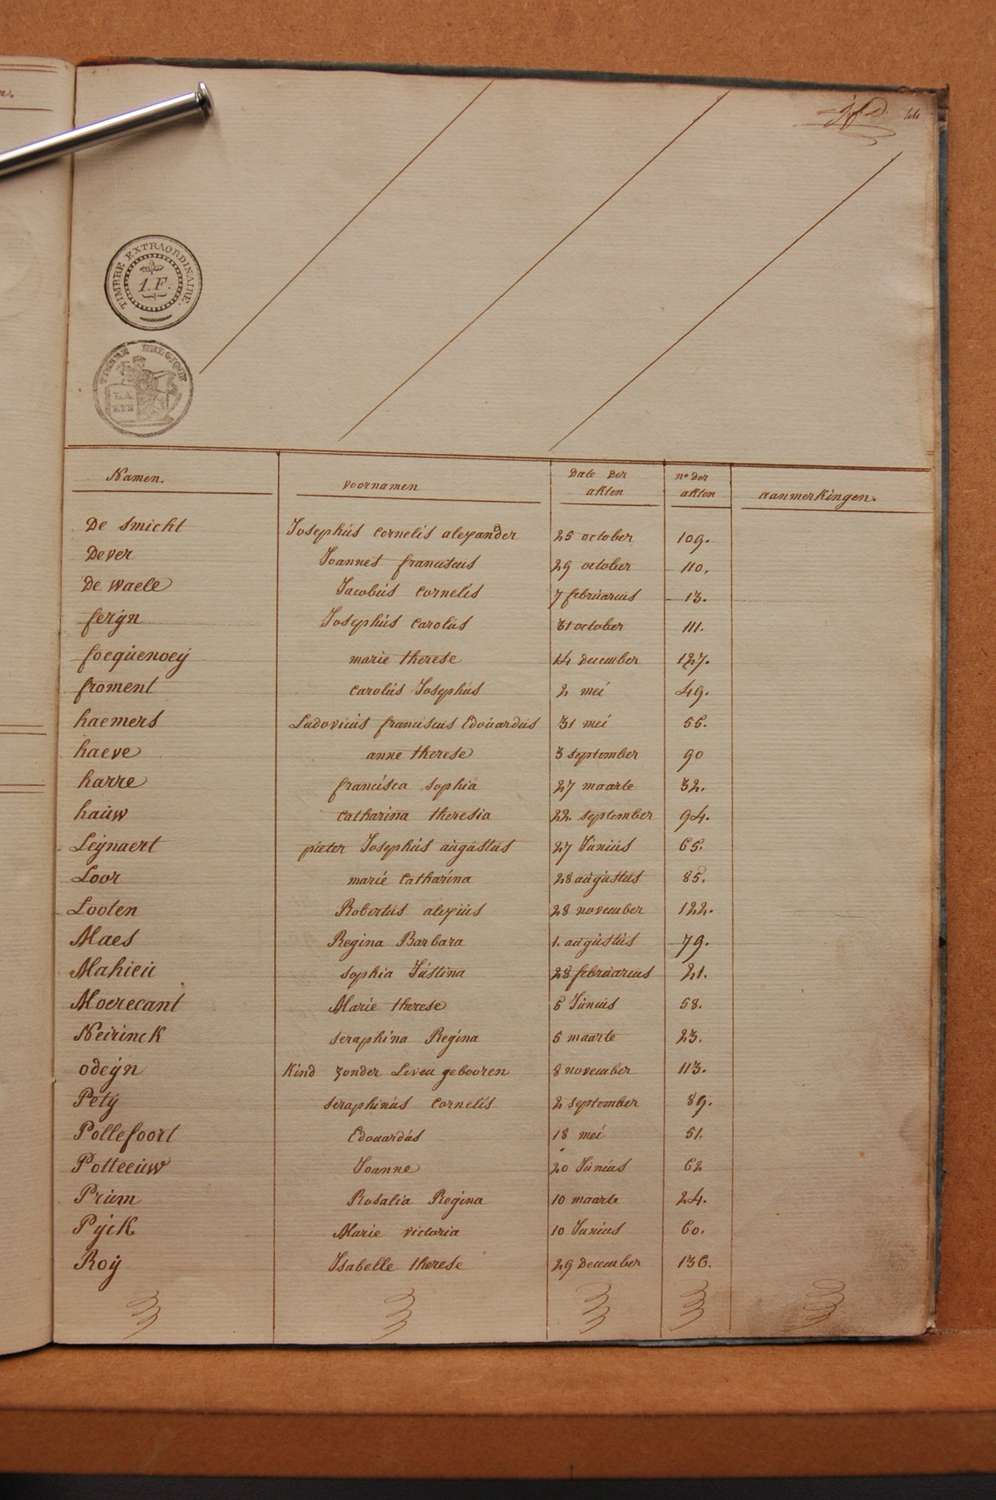 44
TIMBRE EXTRAORDINAIRE.
1. F.
Namen. voornamen Date Der akten no der akten aanmerkingen.
De smicht Josephus cornelis alexander 25 october 109.
Dever Joannes franciscus 29 october 110.
De waele Jacobus cornelis 7 februarius 13.
ferÿn Josephus carolus 31 october 111.
focquenoeÿ marie therese 14 december 127.
froment carolus Josephus 2 mei 49.
haemers Ludovicus franciscus Edouardus 31 mei 56.
haeve anne therese 3 september 90
harre francisca sophia 27 maarte 32.
hauw catharina theresia 22 september 94.
Leÿnaert pieter Josephus augustus 27 Junius 65.
Loor marie catharina 28 augustus 85.
Looten Robertus alexius 28 november 122.
Maes Regina Barbara 1. augustus 79.
Mahieu sophia Justina 28 februarius 21.
Moerecant Marie therese 6 Junius 58.
Neirinck seraphina Regina 6 maarte 23.
odeÿn Kind zonder Leven gebooren 8 november 113.
Petÿ seraphinus cornelis 2 september 89.
Pollefoort Edouardus 18 mei 51.
Potteeuw Joanne 20 Junius 62
Prium Rosalia Regina 10 maarte 24.
Pÿck Marie victoria 10 Junius 60.
Roÿ Isabelle therese 29 December 136.